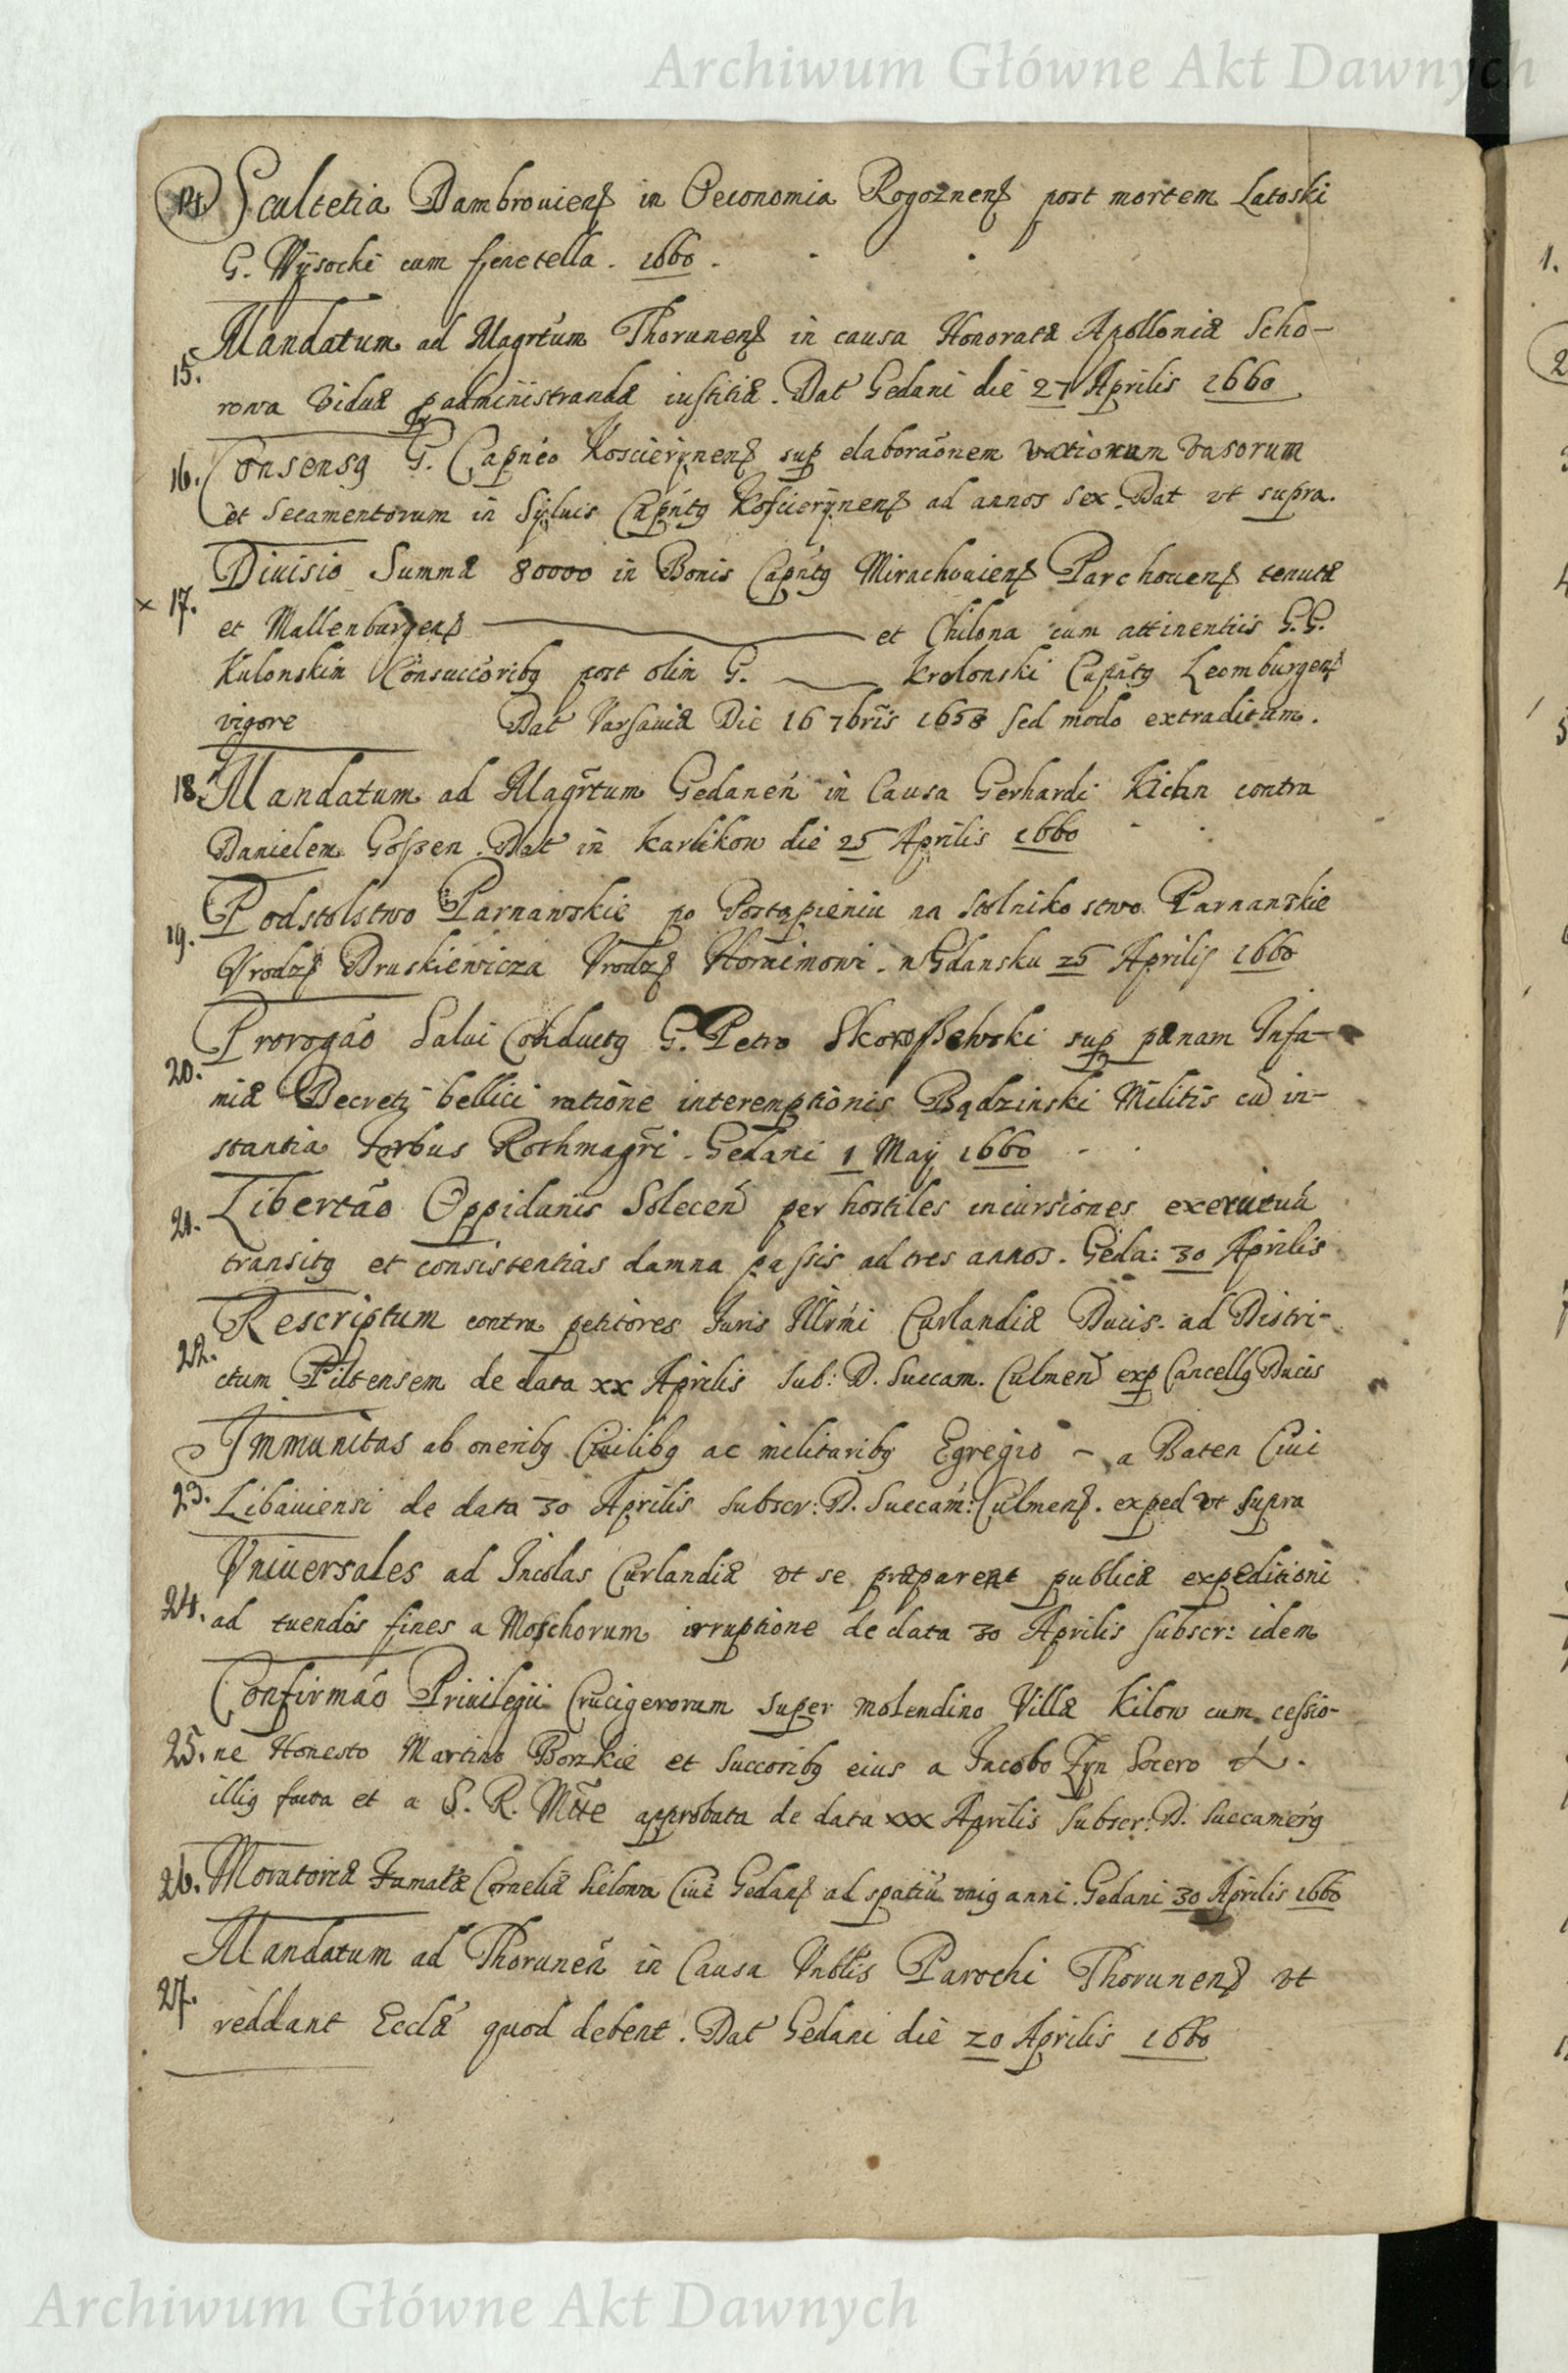 Archiwum Główne Akt Dawnych
14 Scultetia Dambrouiens in Oeconomia Rogoznens post mortem Latoski
G. Wysocki cum fenetella. 1660.
15. Mandatum ad Magrtum Thorunens in causa Honoratæ Apolloniæ Scho-
rowa Viduæ p administrandæ iustitiæ. Dat Gedani die 27 Aprilis 1660
16. Consensq G. Capnéo Koscierÿnens sup elaboraõnem variorum Vasorum
et Secamentorum in Syluis Capntq Koscierÿnens ad annos sex. Dat vt supra.
x 17. Diuisio Summæ 80000 in Bonis Capntq Mirachouiens Parchouens tenutæ
et Mallenburgens et Chilona cum attinentiis G.G.
Kulonskin Consuccoribq post olim G. Krolonski Capntq Leomburgens
vigore Dat Varsauiæ Die 16 7bris 1658 sed modo extraditum.
18. Mandatum ad Magrtum Gedanen in Causa Gerhardi Kichn contra
Danielem Gossen. Dat in Karlikow die 25 Aprilis 1660
19. Podstolstwo Parnawskie po Postąpieniu na Stolnikostwo Parnawskie
Vrodz Druskiewicza Vrodz Hornimowi. w Gdansku 26 Aprilis 1660
20. Prorogaõ Salui Conductq G. Petro Skoroszewski sup pænam Infa-
miæ Decreti bellici ratione interemptionis Bądzinski Militis cu in-
stantia Rothmagri. Gedani 1 Maÿ 1660
21. Libertaõ Oppidanis Solecen per hostiles incursiones exercituu
transitq et consistentias damna passis ad tres annos. Geda: 30 Aprilis
22. Rescriptum contra petitores Iuris Illrmi Curlandiæ Ducis ad Distri-
ctum Piltensem de data xx Aprilis Sub: D. Succam. Culmen exp Cancellq Ducis
23. Immunitas ab oneribq Ciuilibq ac militaribq Egregio - a Baten Ciui
Libauiensi de data 30 Aprilis Subscr: D. Succam: Culmens. exped vt supra
24. Vniuersales ad Incolas Curlandiæ vt se præparent publicæ expeditioni
ad tuendos fines a Moschorum irruptione de data 30 Aprilis Subscr: idem
25. Confirmaõ Priuilegii Crucigerorum super molendino Villæ Kilow cum cessio-
ne Honesto Martino Borzkie et Succoribq eius a Iacobo Zyn Socero
illiq facta et a S. R. Mtte approbata de data xxx Aprilis Subscr: D. Succamerq
26. Moratoriæ Famatæ Corneliæ Sielowa Ciui Gedans ad spatiu vniq anni. Gedani 30 Aprilis 1660
27. Mandatum ad Thorunen in Causa Vnblis Parochi Thorunens vt
reddant Ecclæ quod debent. Dat Gedani die 20 Aprilis 1660
1.
2
Archiwum Główne Akt Dawnych